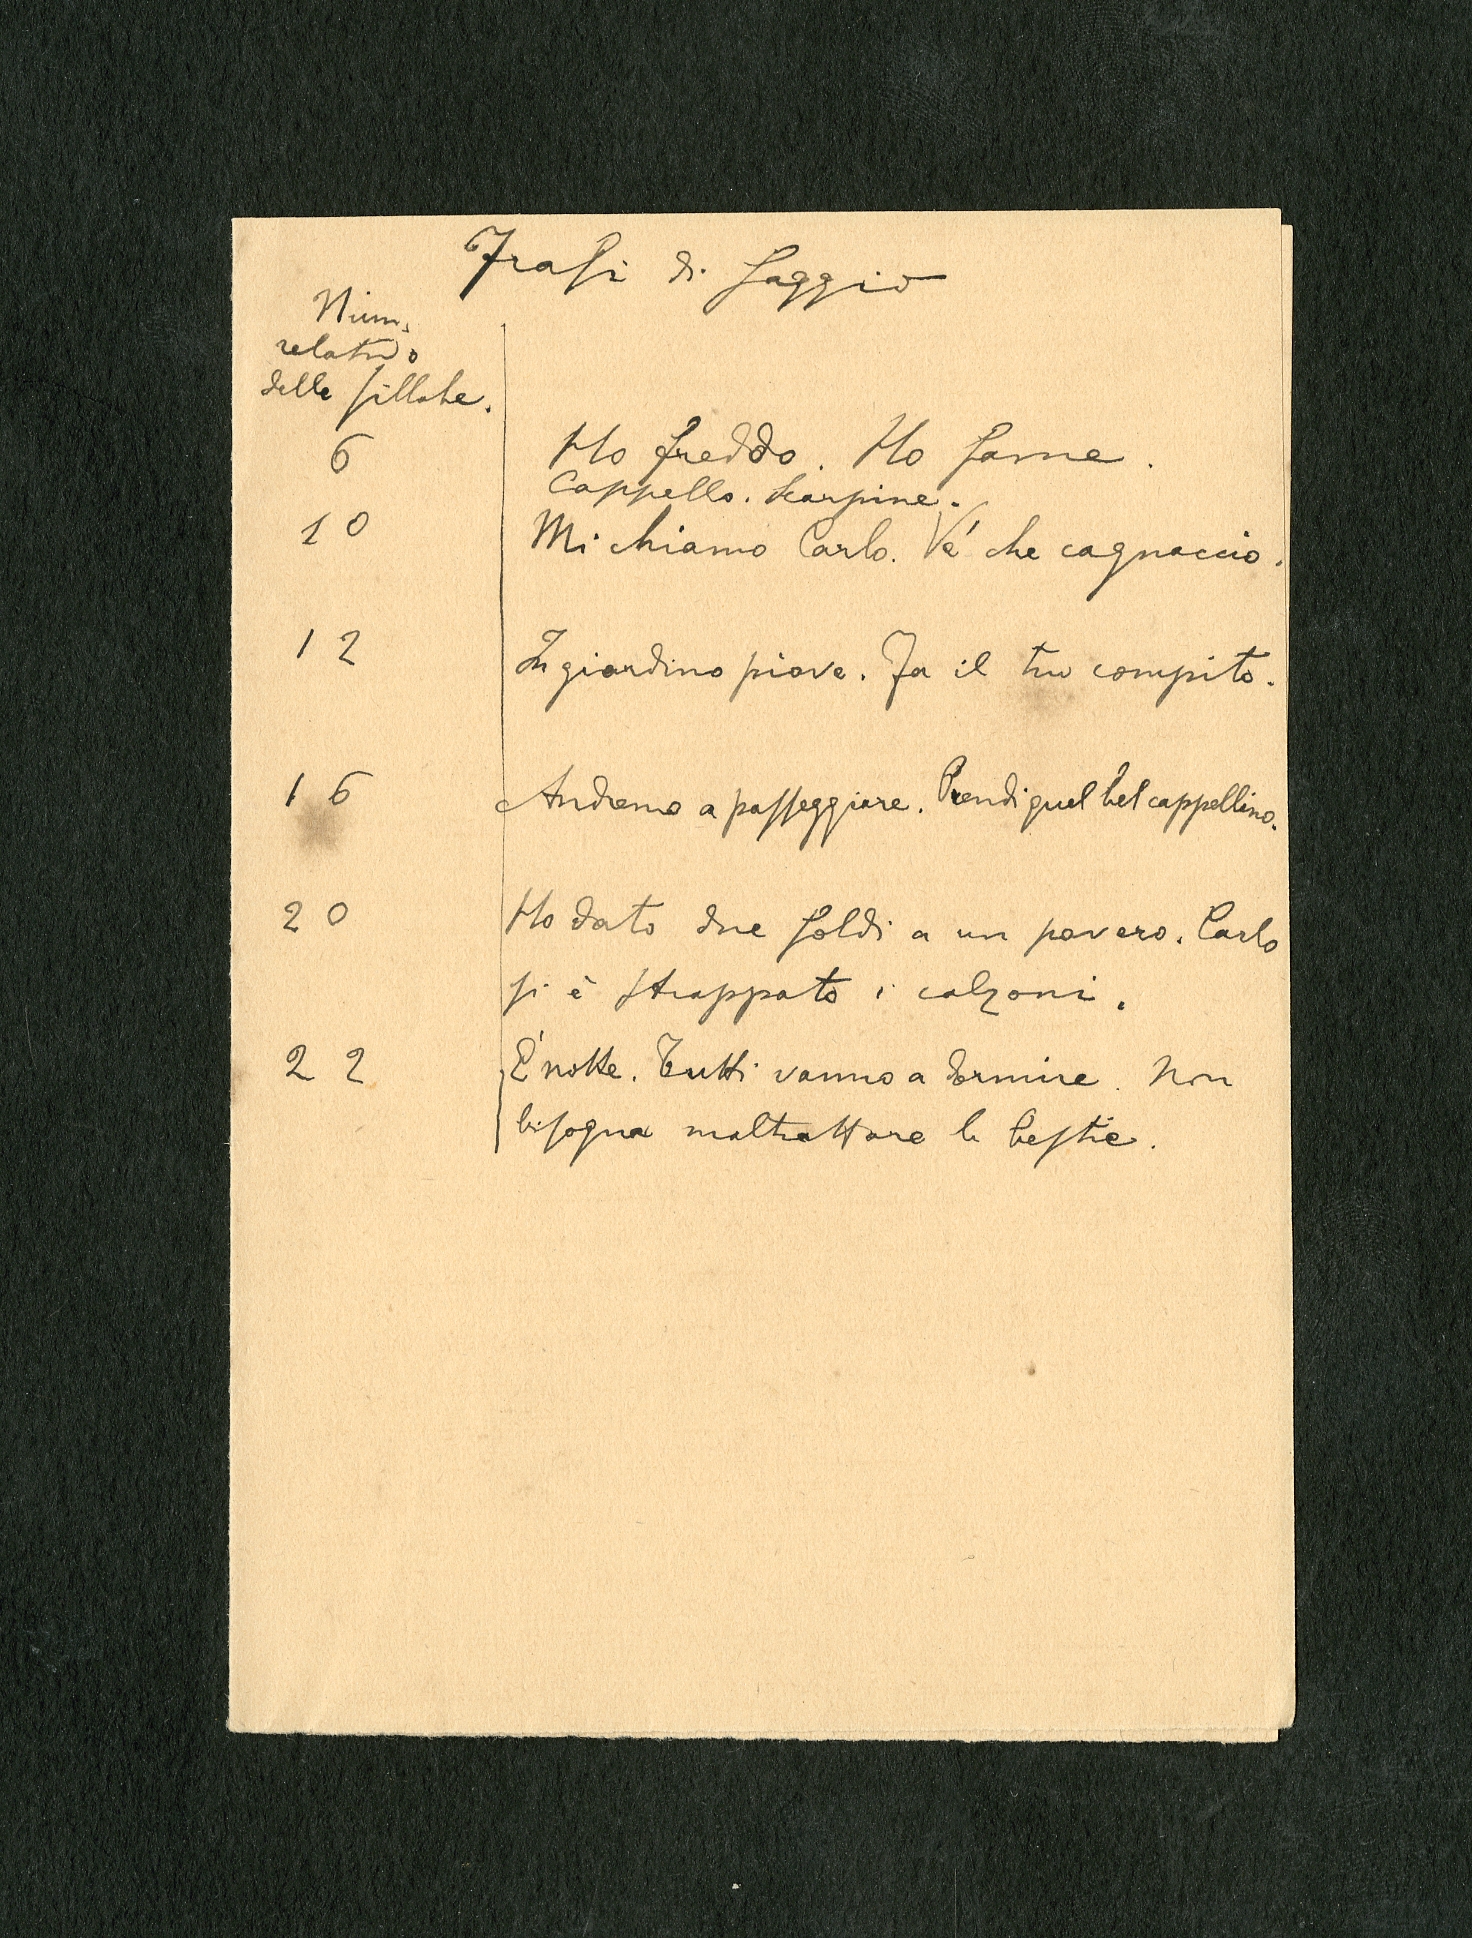 Frasi di saggio
Num.
relativo
delle sillabe.
6 Ho freddo. Ho fame.
Cappello. Scarpine.
10 Mi chiamo Carlo. Ve' che cagnaccio.
12 In giardino piove. Fa il tuo compito.
16 Andremo a passeggiare. Prendi quel bel cappellino.
20 Ho dato due soldi a un povero. Carlo
si è strappato i calzoni.
22 E' notte. Tutti vanno a dormire. Non
bisogna maltrattare le bestie.